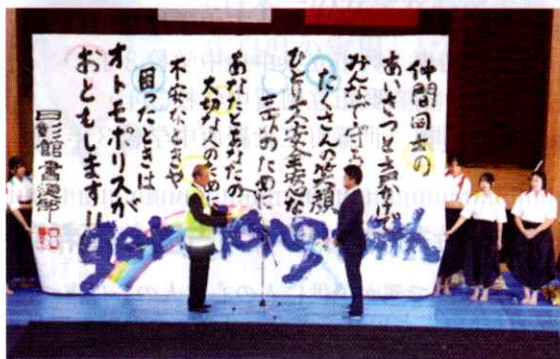 仲間同士の
あいさつと声かけで
みんなで守ろ
たくさんの笑顔
ひとりで安全安心な
三次のために
あなたとあなたの
大切な人のために
不安なときや
困ったときは
オトモポリスが
おともします!!
日彰館書道部
get along with